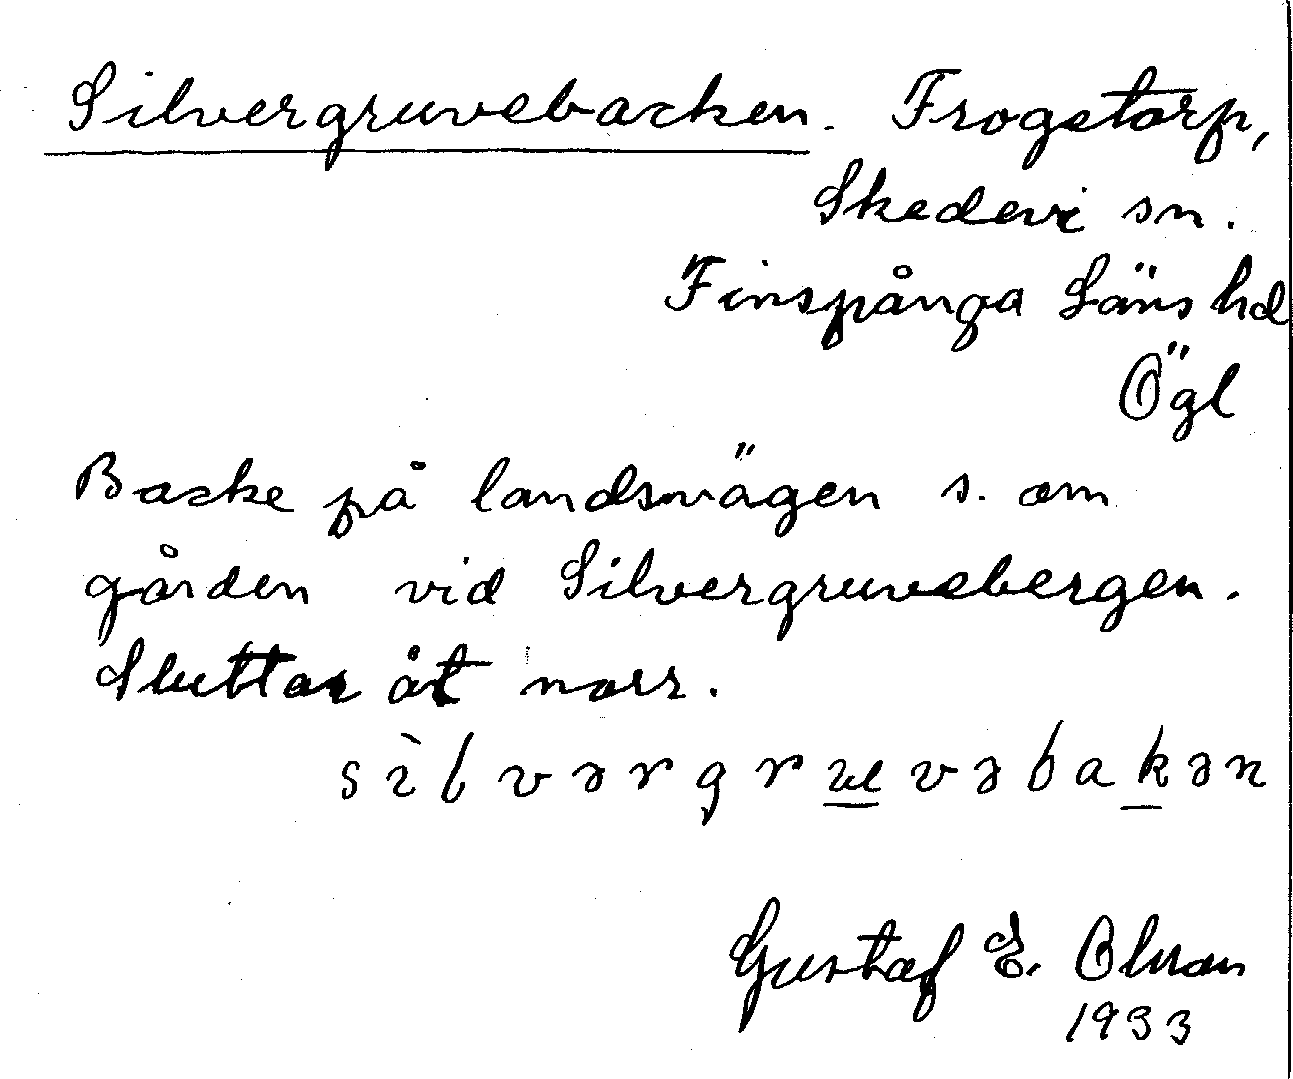 Silvergruvebacken. Frogstorp,
Skedevi sn.
Finspånga Läns hd
Ögl
Backe på landsvägen s. om
gården vid Silvergruvebergen.
Sluttar åt norr.
sìlvərgruvəbakən
Gustaf E. Olsson
1933